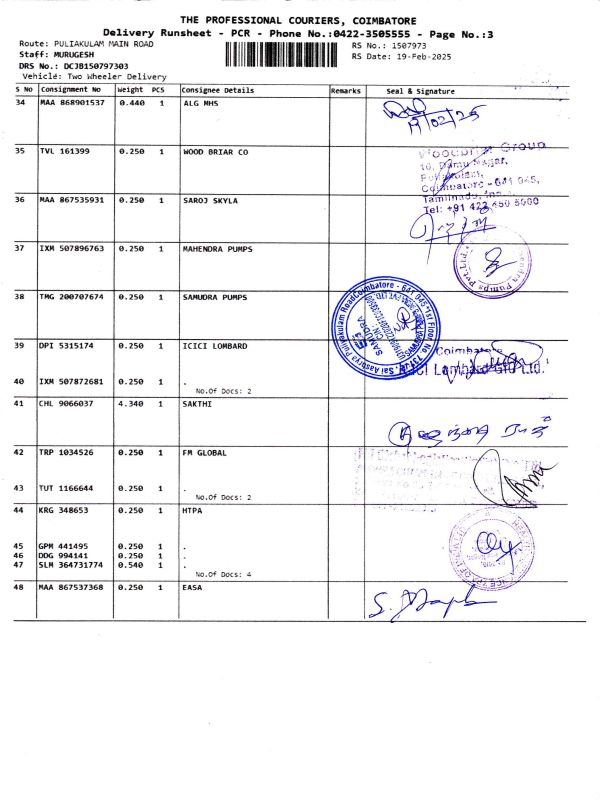 THE PROFESSIONAL COURIERS, COIMBATORE
Delivery Runsheet - PCR - Phone No.:0422-3505555 - Page No.:3
Route: PULIAKULAM MAIN ROAD
RS No.: 1507973
Staff: MURUGESH
RS Date: 19-Feb-2025
DRS No.: DCJB150797303
Vehicle: Two Wheeler Delivery
S No Consignment No Weight PCS Consignee Details Remarks Seal & Signature
34 MAA 868901537 0.440 1 ALG MHS
19/02/25
35 TVL 161399 0.250 1 WOOD BRIAR CO
Woodbriar Group
Coimbatore - 641 045,
Tamilnadu,
Tel: +91 422 450 5000
36 MAA 867535931 0.250 1 SAROJ SKYLA
37 IXM 507896763 0.250 1 MAHENDRA PUMPS
38 TMG 200707674 0.250 1 SAMUDRA PUMPS
39 DPI 5315174 0.250 1 ICICI LOMBARD
Coimbatore
40 IXM 507872681 0.250 1 .
No.Of Docs: 2
41 CHL 9066037 4.340 1 SAKTHI
42 TRP 1034526 0.250 1 FM GLOBAL
43 TUT 1166644 0.250 1 .
No.Of Docs: 2
44 KRG 348653 0.250 1 HTPA
45 GPM 441495 0.250 1 .
46 DDG 994141 0.250 1 .
47 SLM 364731774 0.540 1 .
No.Of Docs: 4
48 MAA 867537368 0.250 1 EASA